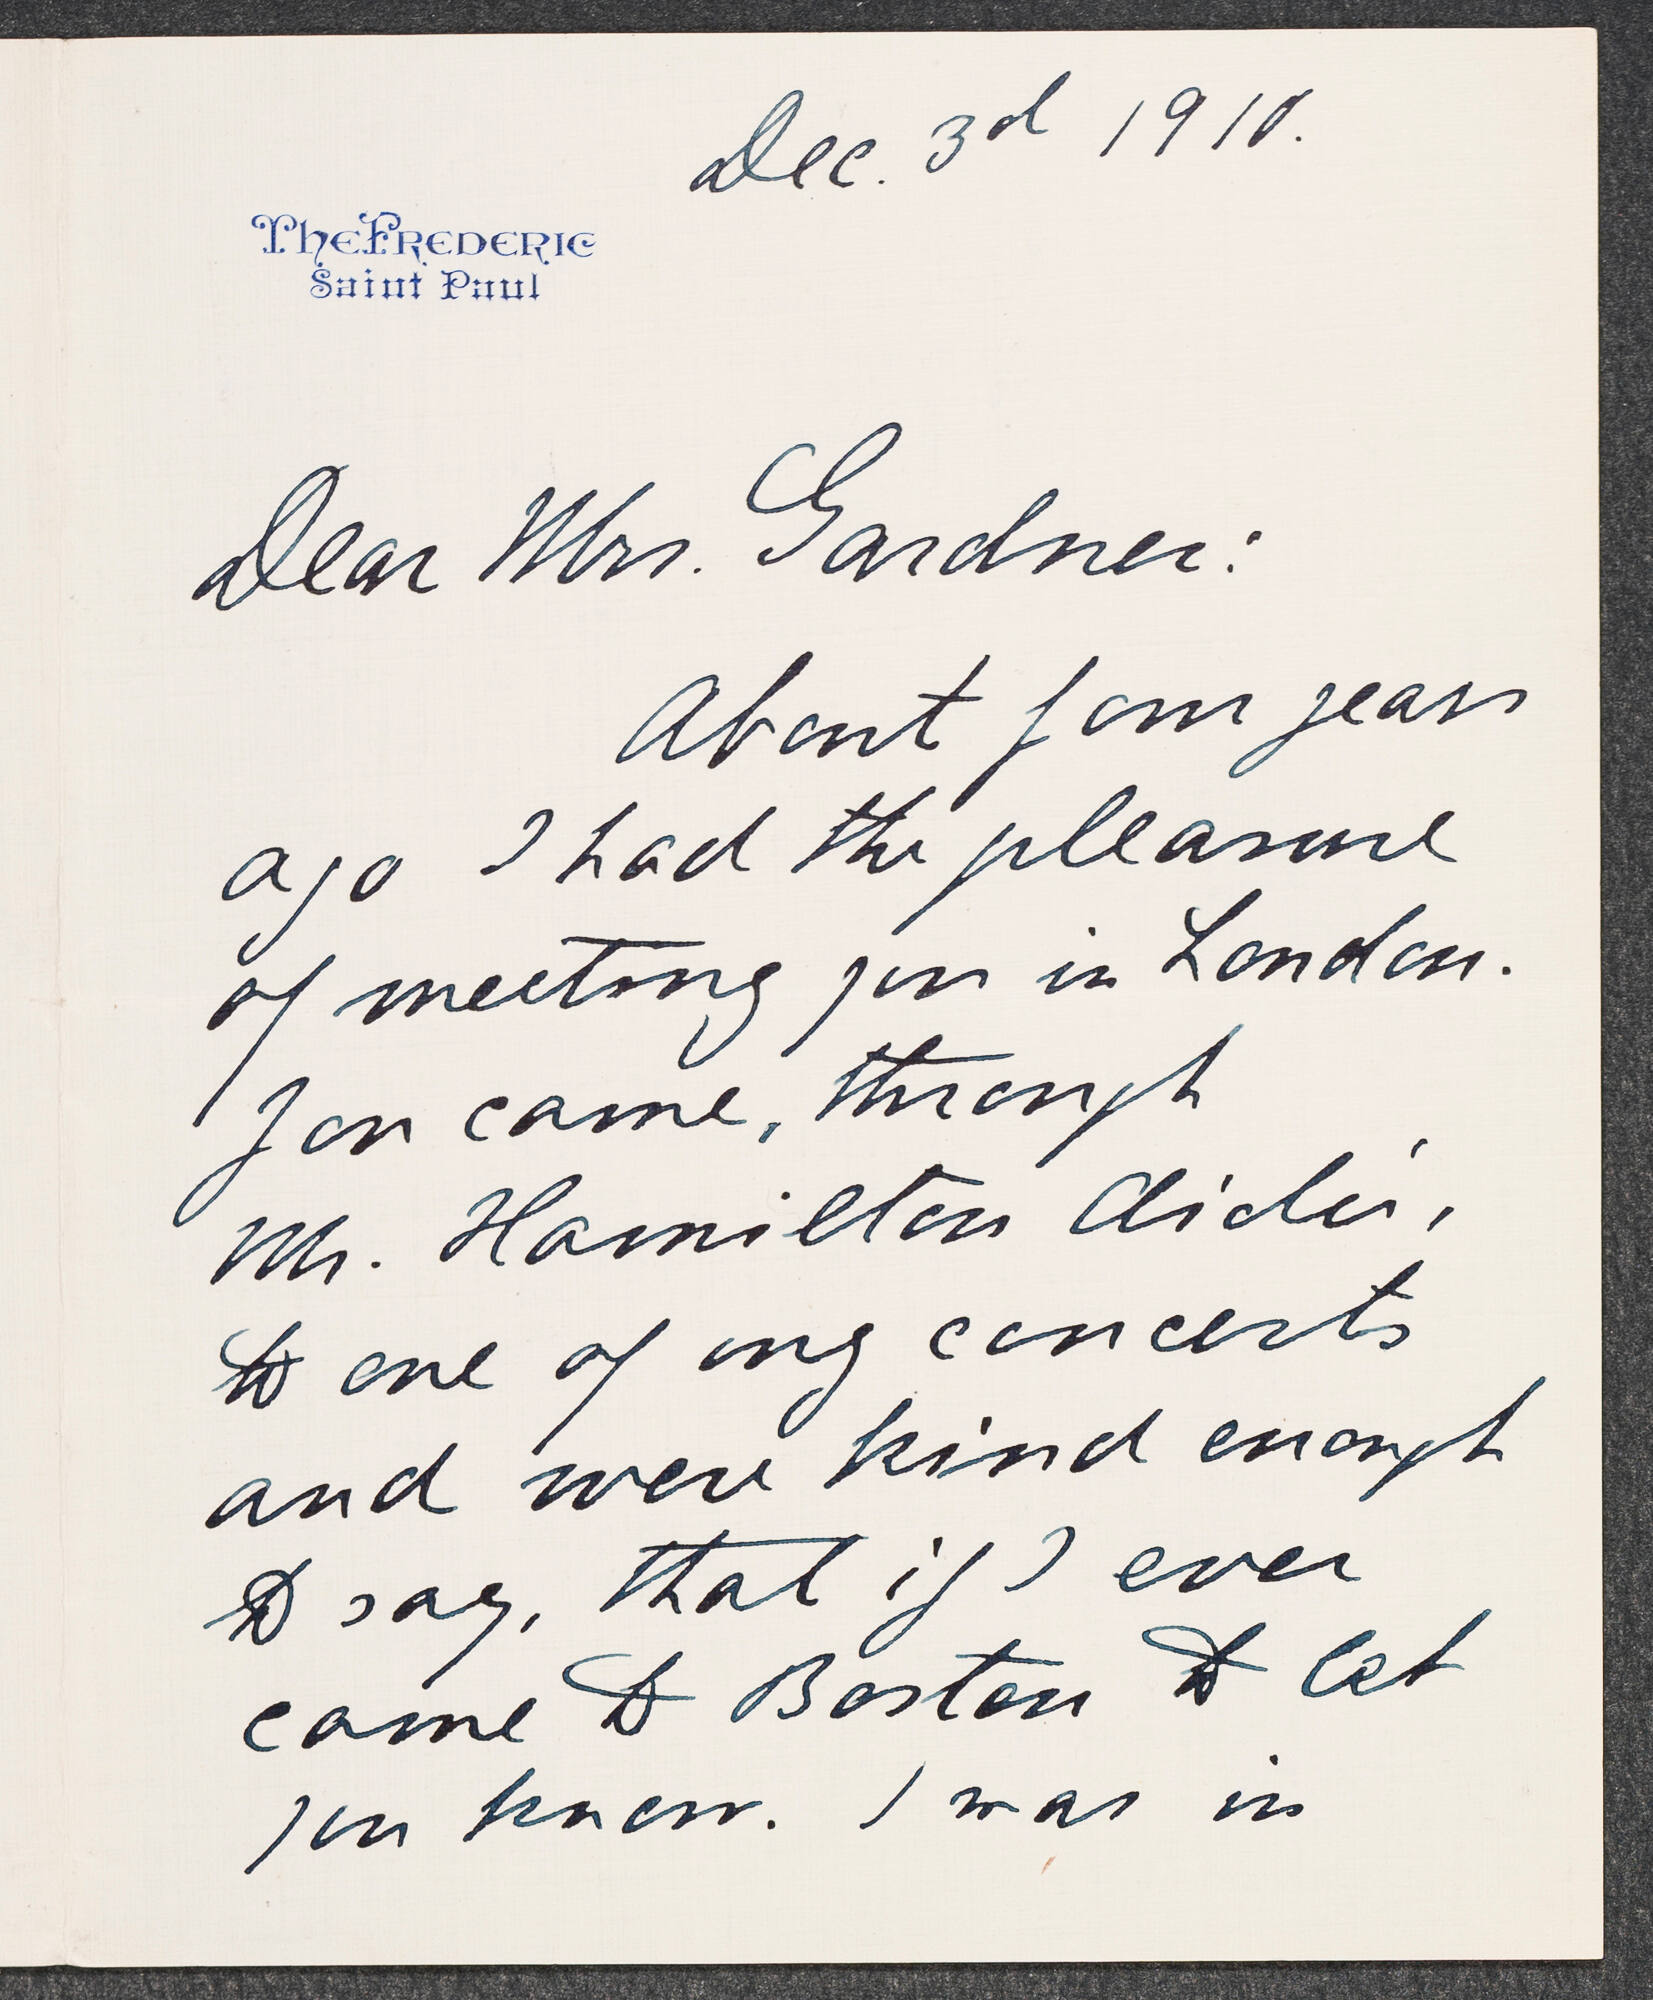 Dec. 3d 1910.
The Frederic
Saint Paul
Dear Mrs. Gardner:
About four years
ago I had the pleasure
of meeting you in London.
You came, through
Mr. Hamilton Aïdé,
to one of my concerts
and were kind enough
to say, that if I ever
came to Boston to let
you know. I was in